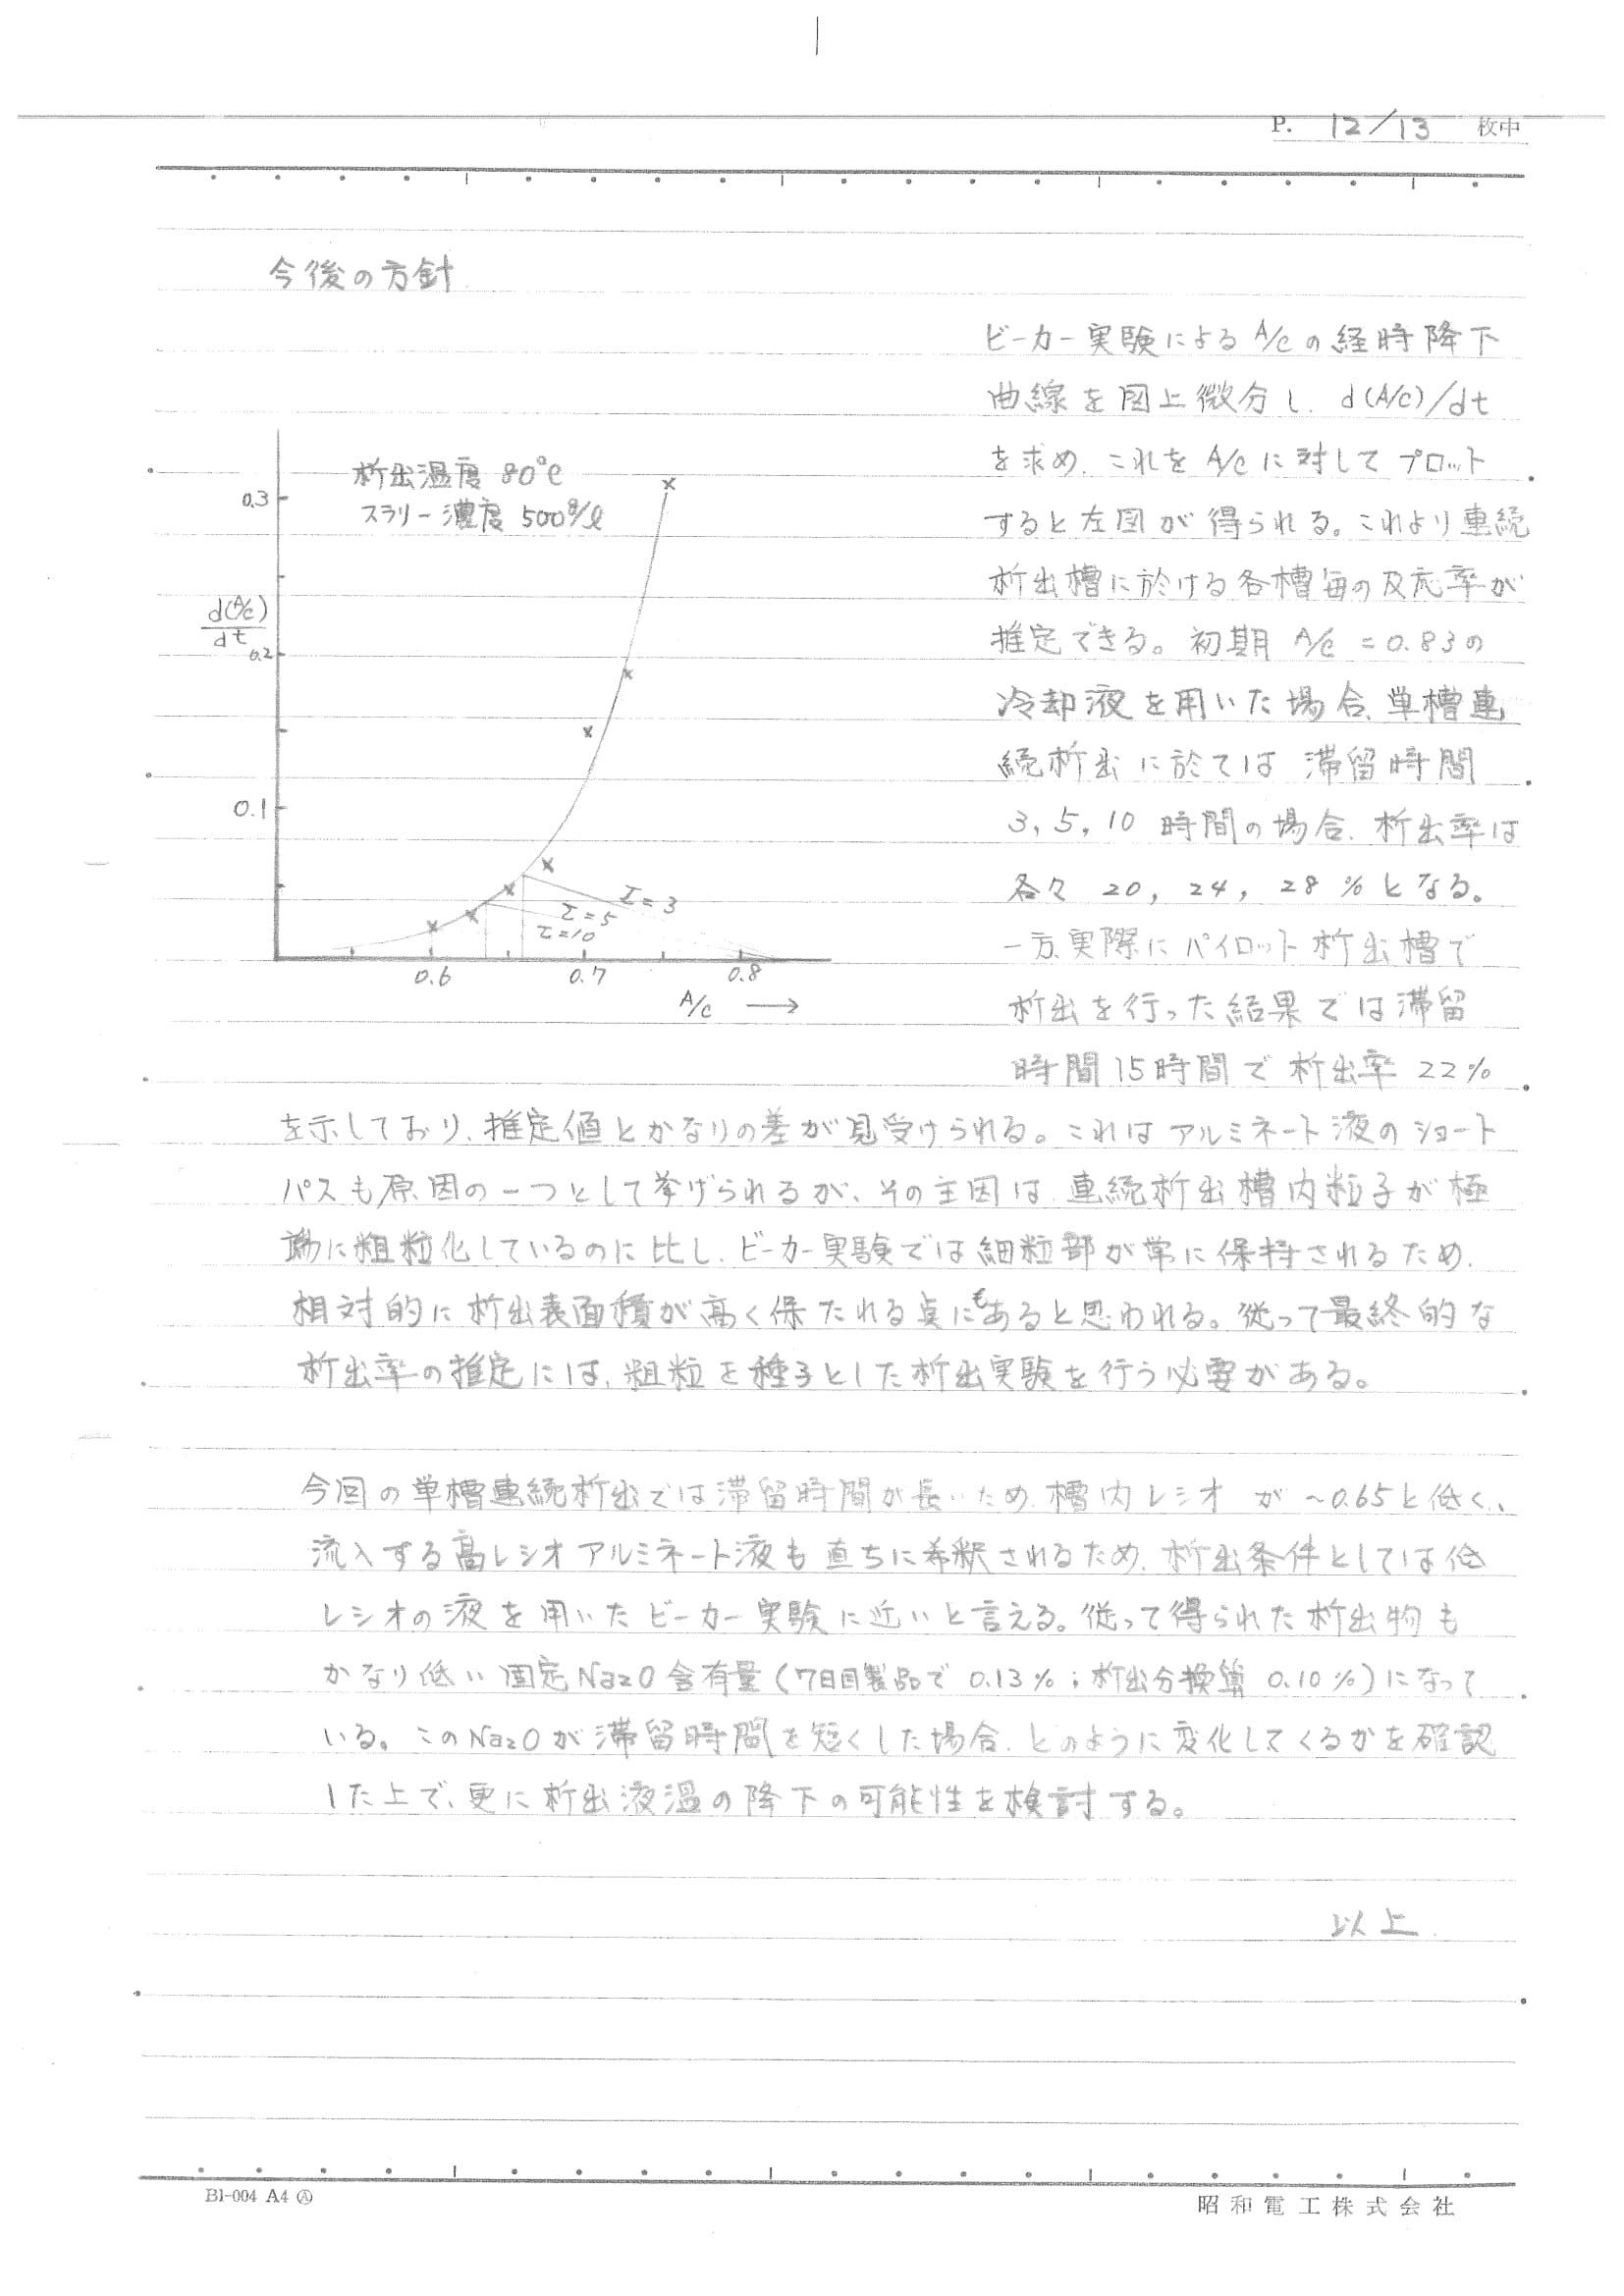 P. 12/13 枚中
今後の方針
ビーカー実験による A/c の経時降下
曲線を図上微分し、d(A/c)/dt
を求め、これを A/c に対してプロット
すると左図が得られる。これより連続
析出槽に於ける各槽毎の反応率が
推定できる。初期 A/c = 0.83の
冷却液を用いた場合、単槽連
続析出に於ては 滞留時間
3, 5, 10 時間の場合、析出率は
各々 20, 24, 28 % となる。
一方、実際にパイロット析出槽で
析出を行った結果では滞留
時間15時間で 析出率 22%
析出温度 80℃
スラリー濃度 500g/l
0.3
d(A/c)
dt
0.2
0.1
τ=3
τ=5
τ=10
0.6 0.7 0.8
A/c →
を示しており、推定値とかなりの差が見受けられる。これはアルミネート液のショート
パスも原因の一つとして挙げられるが、その主因は、連続析出槽内粒子が極
端に粗粒化しているのに比し、ビーカー実験では細粒部が常に保持されるため、
相対的に析出表面積が高く保たれる点にもあると思われる。従って最終的な
析出率の推定には、粗粒を種子とした析出実験を行う必要がある。
今回の単槽連続析出では滞留時間が長いため、槽内レシオ が ~0.65と低く、
流入する高レシオアルミネート液も直ちに希釈されるため、析出条件としては低
レシオの液を用いたビーカー実験に近いと言える。従って得られた析出物も
かなり低い固定Na2O含有量(7日目製品で 0.13%;析出分換算 0.10%)になって
いる。このNa2Oが滞留時間を短くした場合、どのように変化してくるかを確認
した上で、更に析出液温の降下の可能性を検討する。
以上
B1-004 A4 Ⓐ
昭和電工株式会社